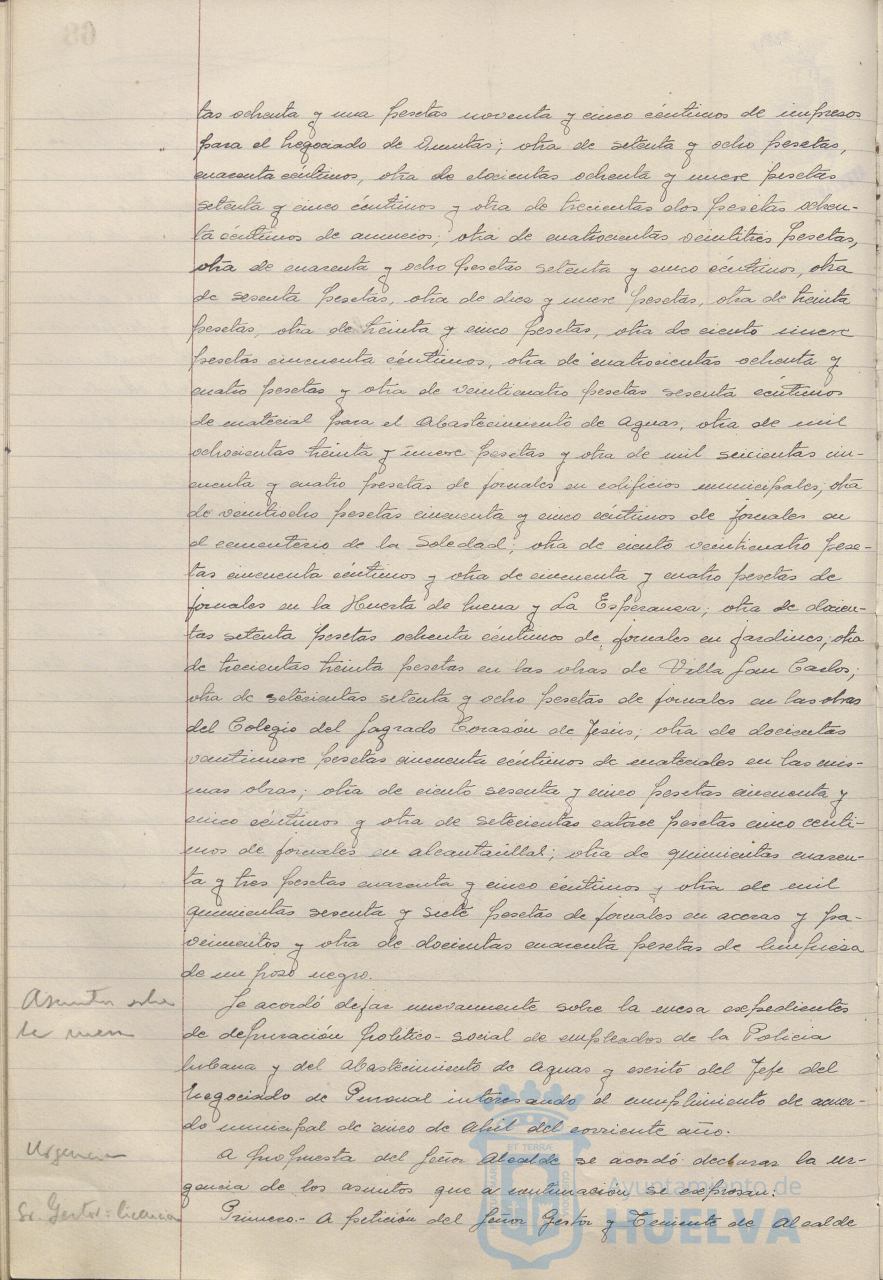 tas ochenta y una pesetas noventa y cinco céntimos de impresos
para el Negociado de Quintas; otra de setenta y ocho pesetas,
cuarenta céntimos, otra de docientas ochenta y nueve pesetas
setenta y cinco céntimos y otra de trecientas dos pesetas ochen-
ta céntimos de anuncios; otra de cuatrocientas veintitres pesetas,
otra de cuarenta y ocho pesetas setenta y cinco céntimos, otra
de sesenta pesetas, otra de diez y nueve pesetas, otra de treinta
pesetas, otra de treinta y cinco pesetas, otra de ciento nueve
pesetas cincuenta céntimos, otra de cuatrocientas ochenta y
cuatro pesetas y otra de veinticuatro pesetas sesenta céntimos
de material para el Abastecimiento de Aguas, otra de mil
ochocientas treinta y nueve pesetas y otra de mil seiscientas cin-
cuenta y cuatro pesetas de jornales en edificios municipales; otra
de veintiocho pesetas cincuenta y cinco céntimos de jornales en
el cementerio de la Soledad; otra de ciento veinticuatro pese-
tas cincuenta céntimos y otra de cincuenta y cuatro pesetas de
jornales en la Huerta de Mena y La Esperanza; otra de docien-
tas setenta pesetas ochenta céntimos de jornales en jardines; otra
de trecientas treinta pesetas en las obras de Villa San Carlos;
otra de setecientas setenta y ocho pesetas de jornales en las obras
del Colegio del Sagrado Corasón de Jesús; otra de docientas
veintinueve pesetas cincuenta céntimos de materiales en las mis-
mas obras; otra de ciento sesenta y cinco pesetas cincuenta y
cinco céntimos y otra de setecientas catorce pesetas cinco cénti-
mos de jornales en alcantarillal; otra de quinientas cuaren-
ta y tres pesetas cuarenta y cinco céntimos y otra de mil
quinientas sesenta y siete pesetas de jornales en aceras y pa-
veimentos y otra de docientas cuarenta pesetas de limpiesa
de un poso negro.
Asuntos sobre
la mesa
Se acordó dejar nuevamente sobre la mesa expedientes
de depuración político-social de empleados de la Policia
Urbana y del Abastecimiento de Aguas y escrito del Jefe del
Negociado de Personal interesando el cumplimiento de acuer-
do municipal de cinco de Abril del corriente año.
Urgencia
A propuesta del Señor Alcalde se acordó declarar la ur-
gencia de los asuntos que a continuación se expresan:
Sr. Gestor: licencia
Primero.- A petición del Señor Gestor y Teniente de Alcalde
ET TERRÆ
Ayuntamiento de
HUELVA